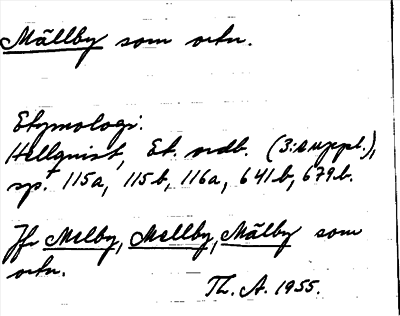 Mällby som ortn.
Etymologi.
Hellquist, Et. ordb. (3:suppl.),
sp. 115a, 115b, 116a, 641b, 679b.
Jfr Melby, Mellby, Mälby som
ortn.
Th. A. 1955.